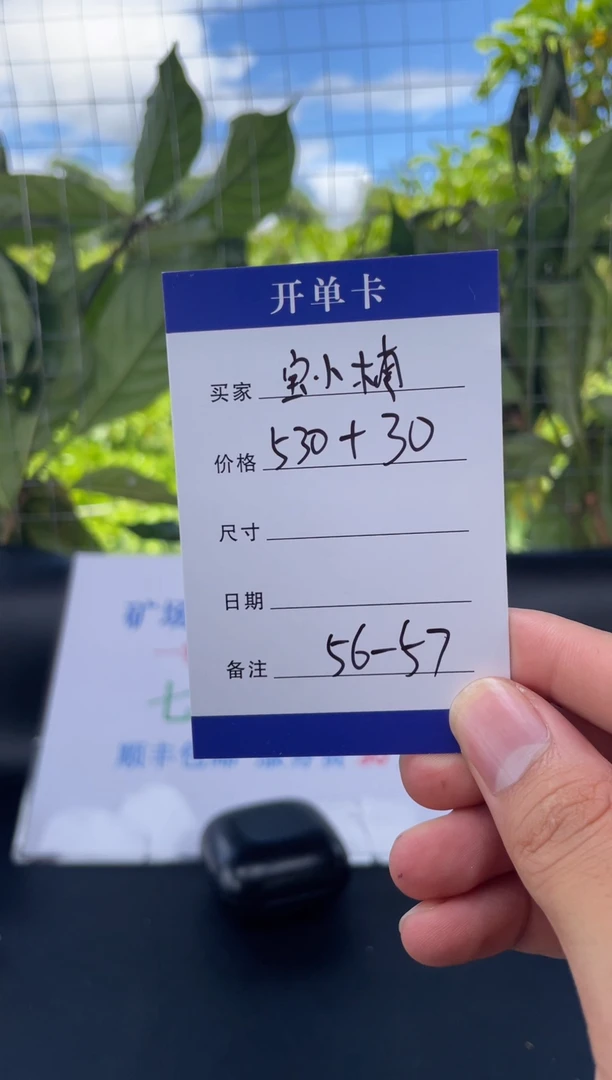 开单卡
买家 宝小楠
价格 530+30
尺寸
日期
备注 56-57
矿场
七
顺丰包邮